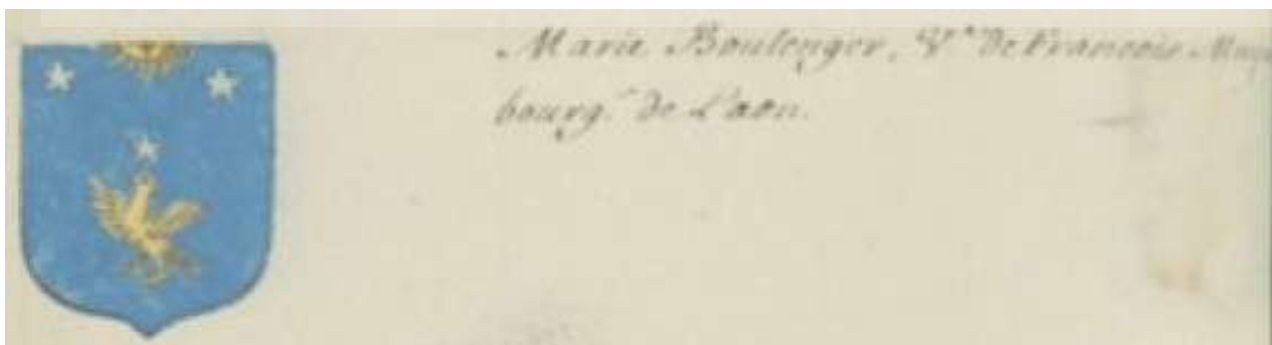 Marie Boulenger, V.e de Francois
bourg. de Laon.